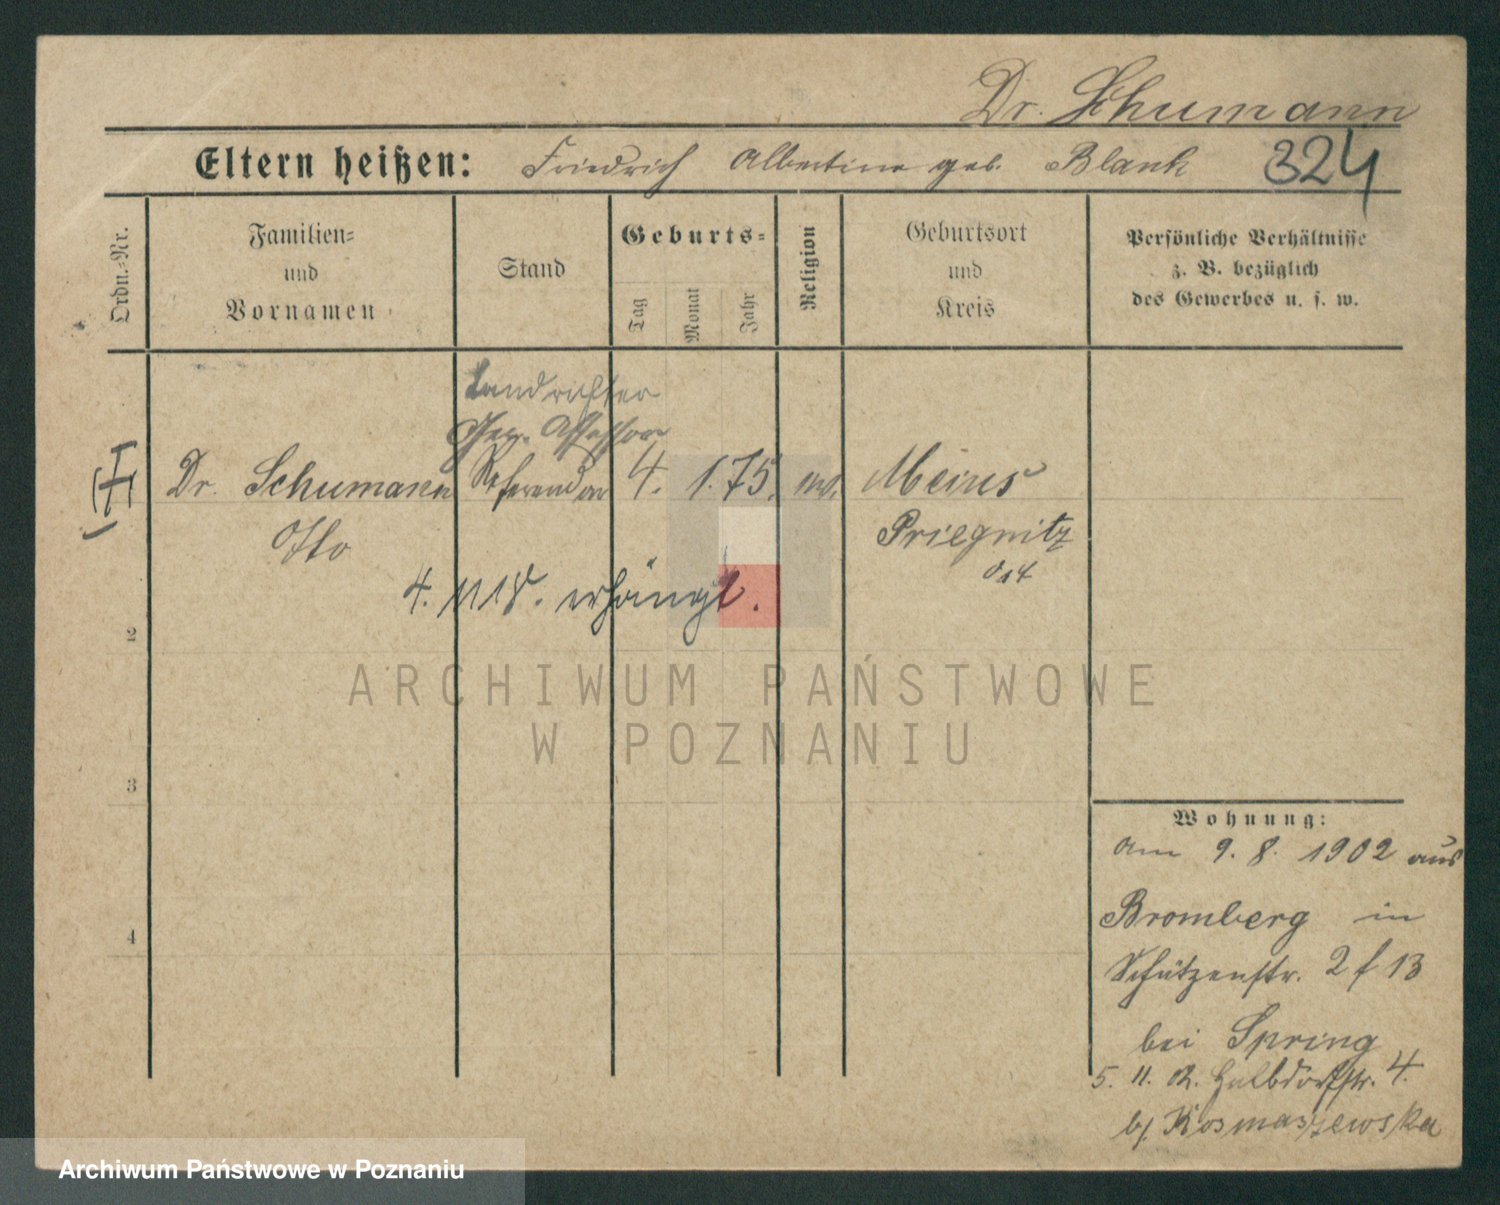 Dr. Schumann
Eltern heißen: Friedrich Albertine geb. Blank 324
Ordn.-Nr.
Familien-
und
Vornamen
Stand
Geburts-
Tag
Monat
Jahr
Religion
Geburtsort
und
Kreis
Persönliche Verhältnisse
z. B. bezüglich
des Gewerbes u. s. w.
Landrichter
Ger. Assessor
Dr. Schumann Referendar 4. 1. 75. ev. Meins
Otto Priegnitz
4. 11 18. erhängt.
2
3
4
Wohnung:
am 9. 8. 1902 aus
Bromberg in
Schützenstr. 2 f 13
bei Spring
5. 11. 02. Halbdorfstr. 4.
b/ Kosmaszewska
ARCHIWUM PAŃSTWOWE
W POZNANIU
Archiwum Państwowe w Poznaniu